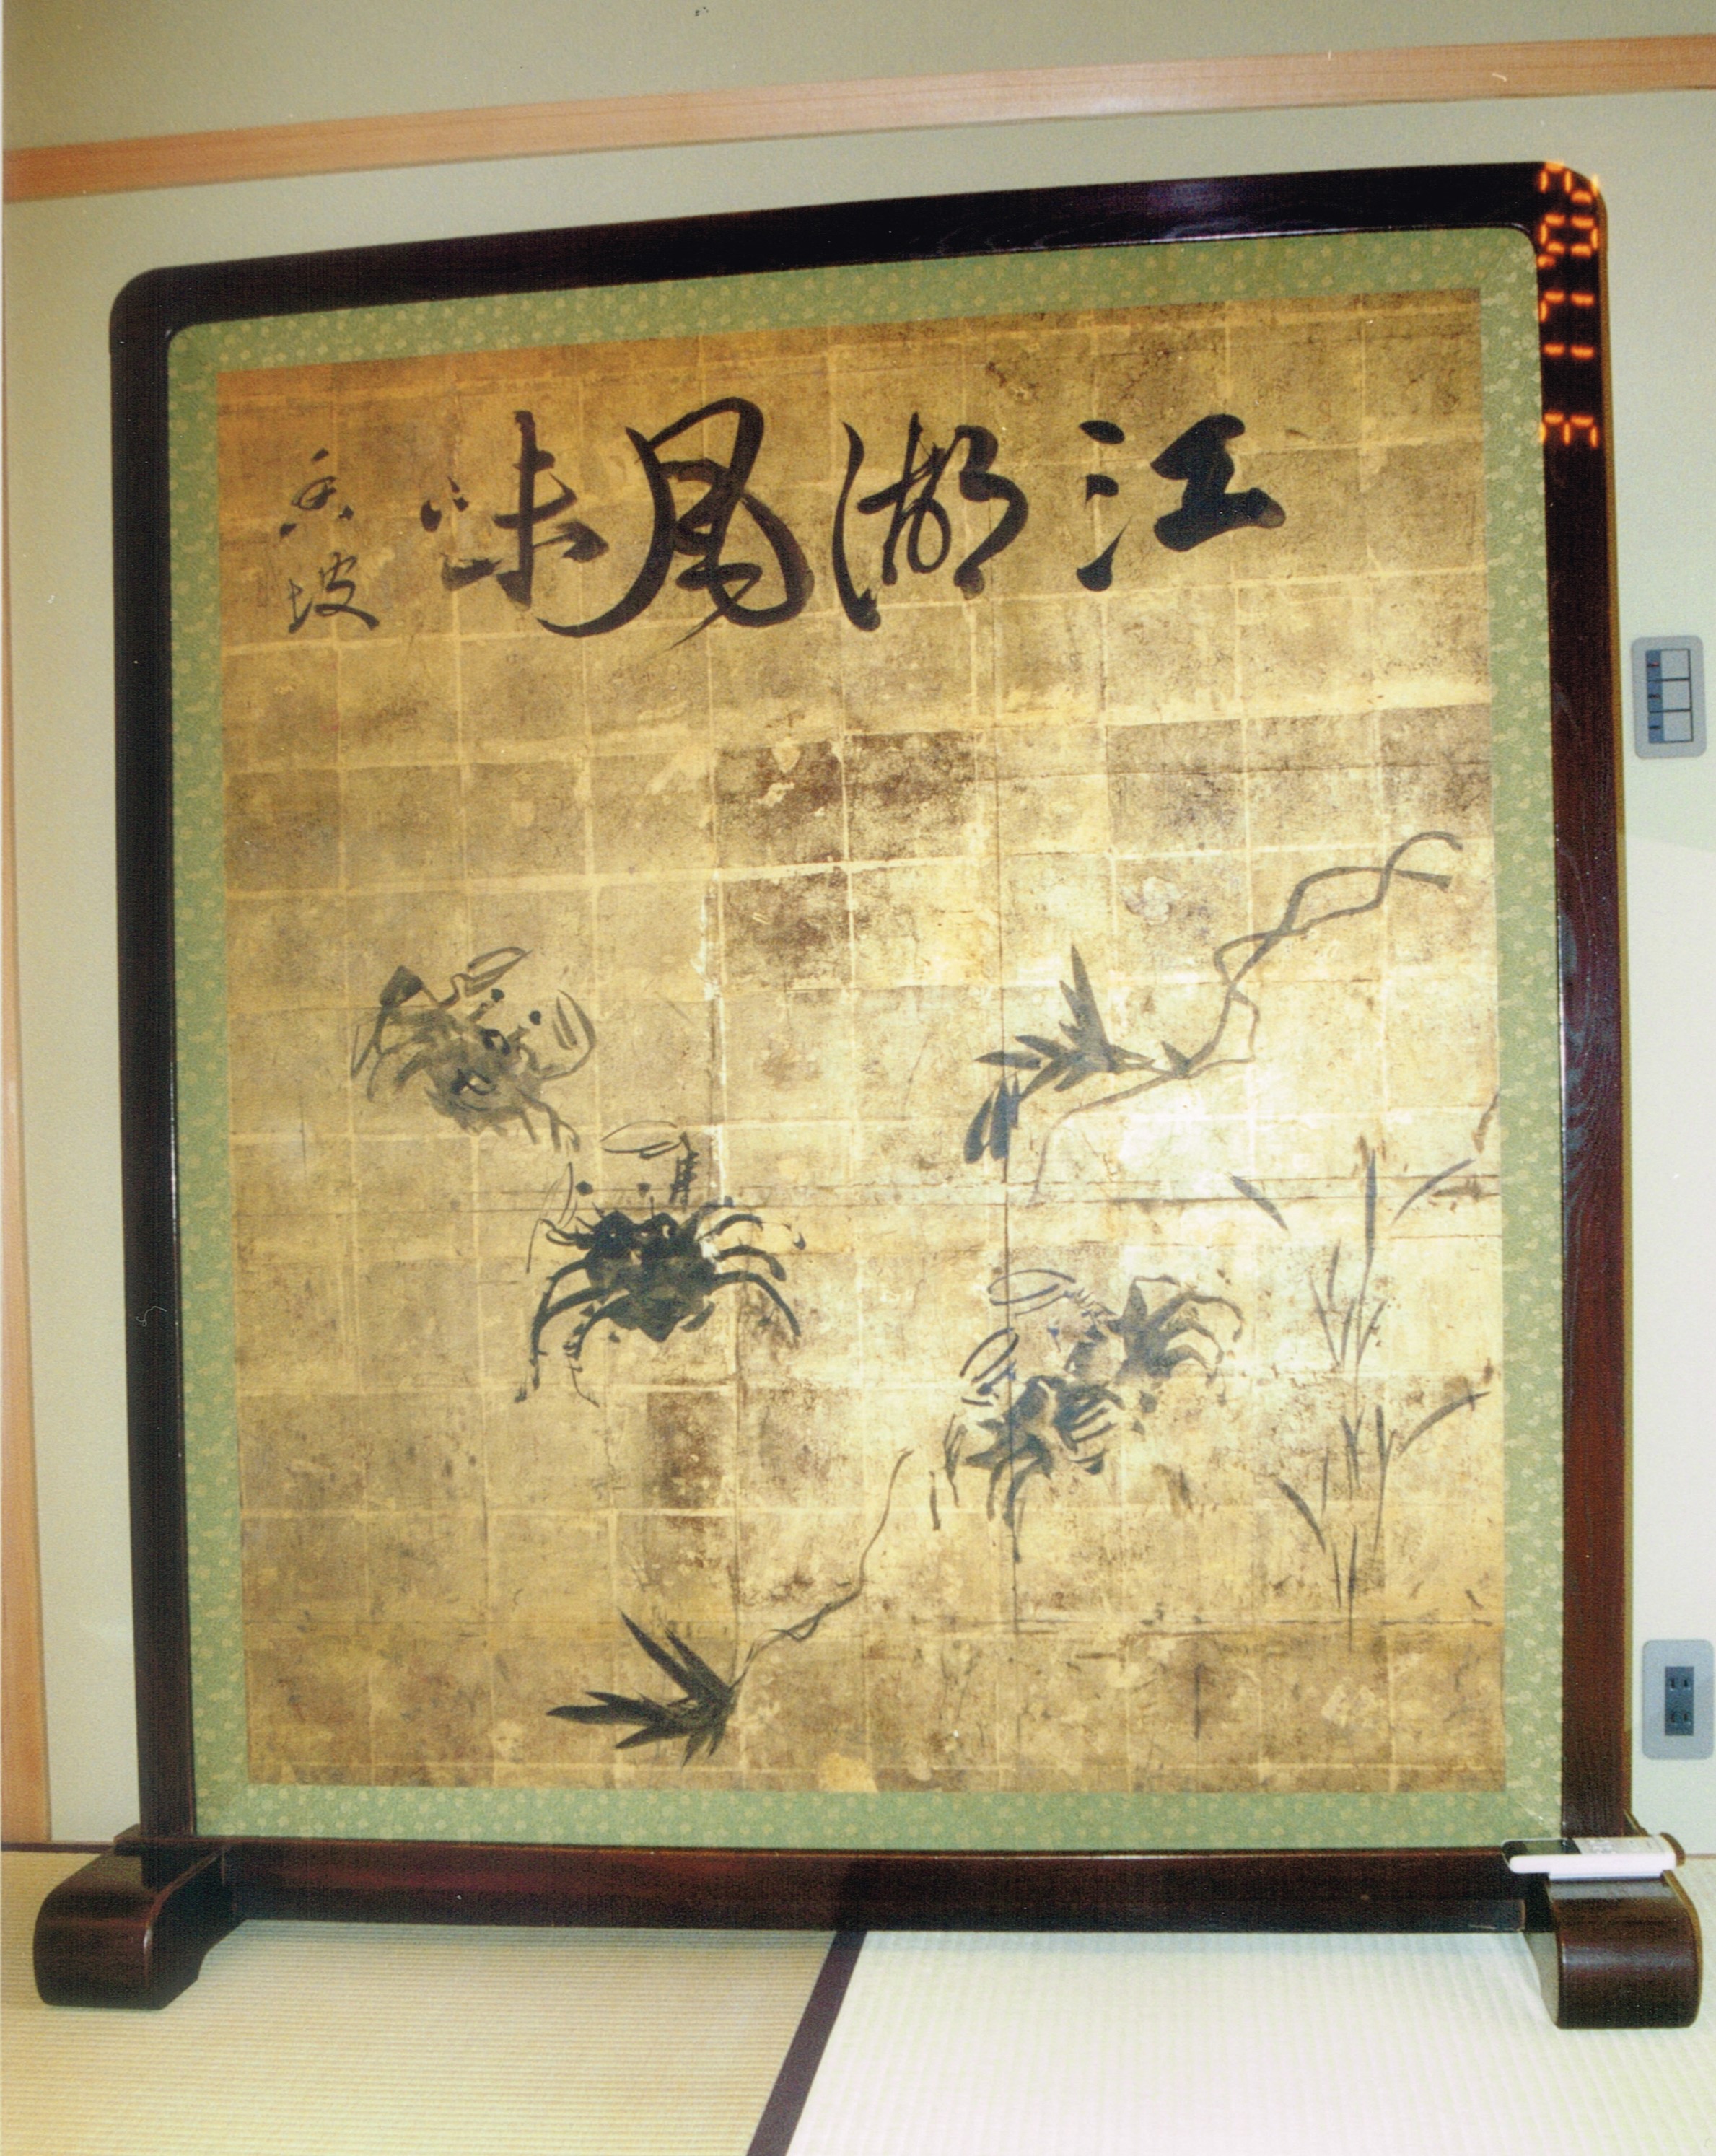 江湖風味
坡